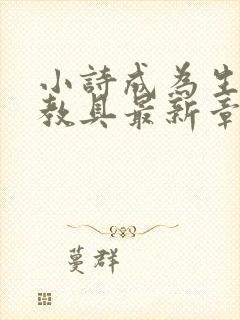 小詩成為生
教具最新章
蔓群